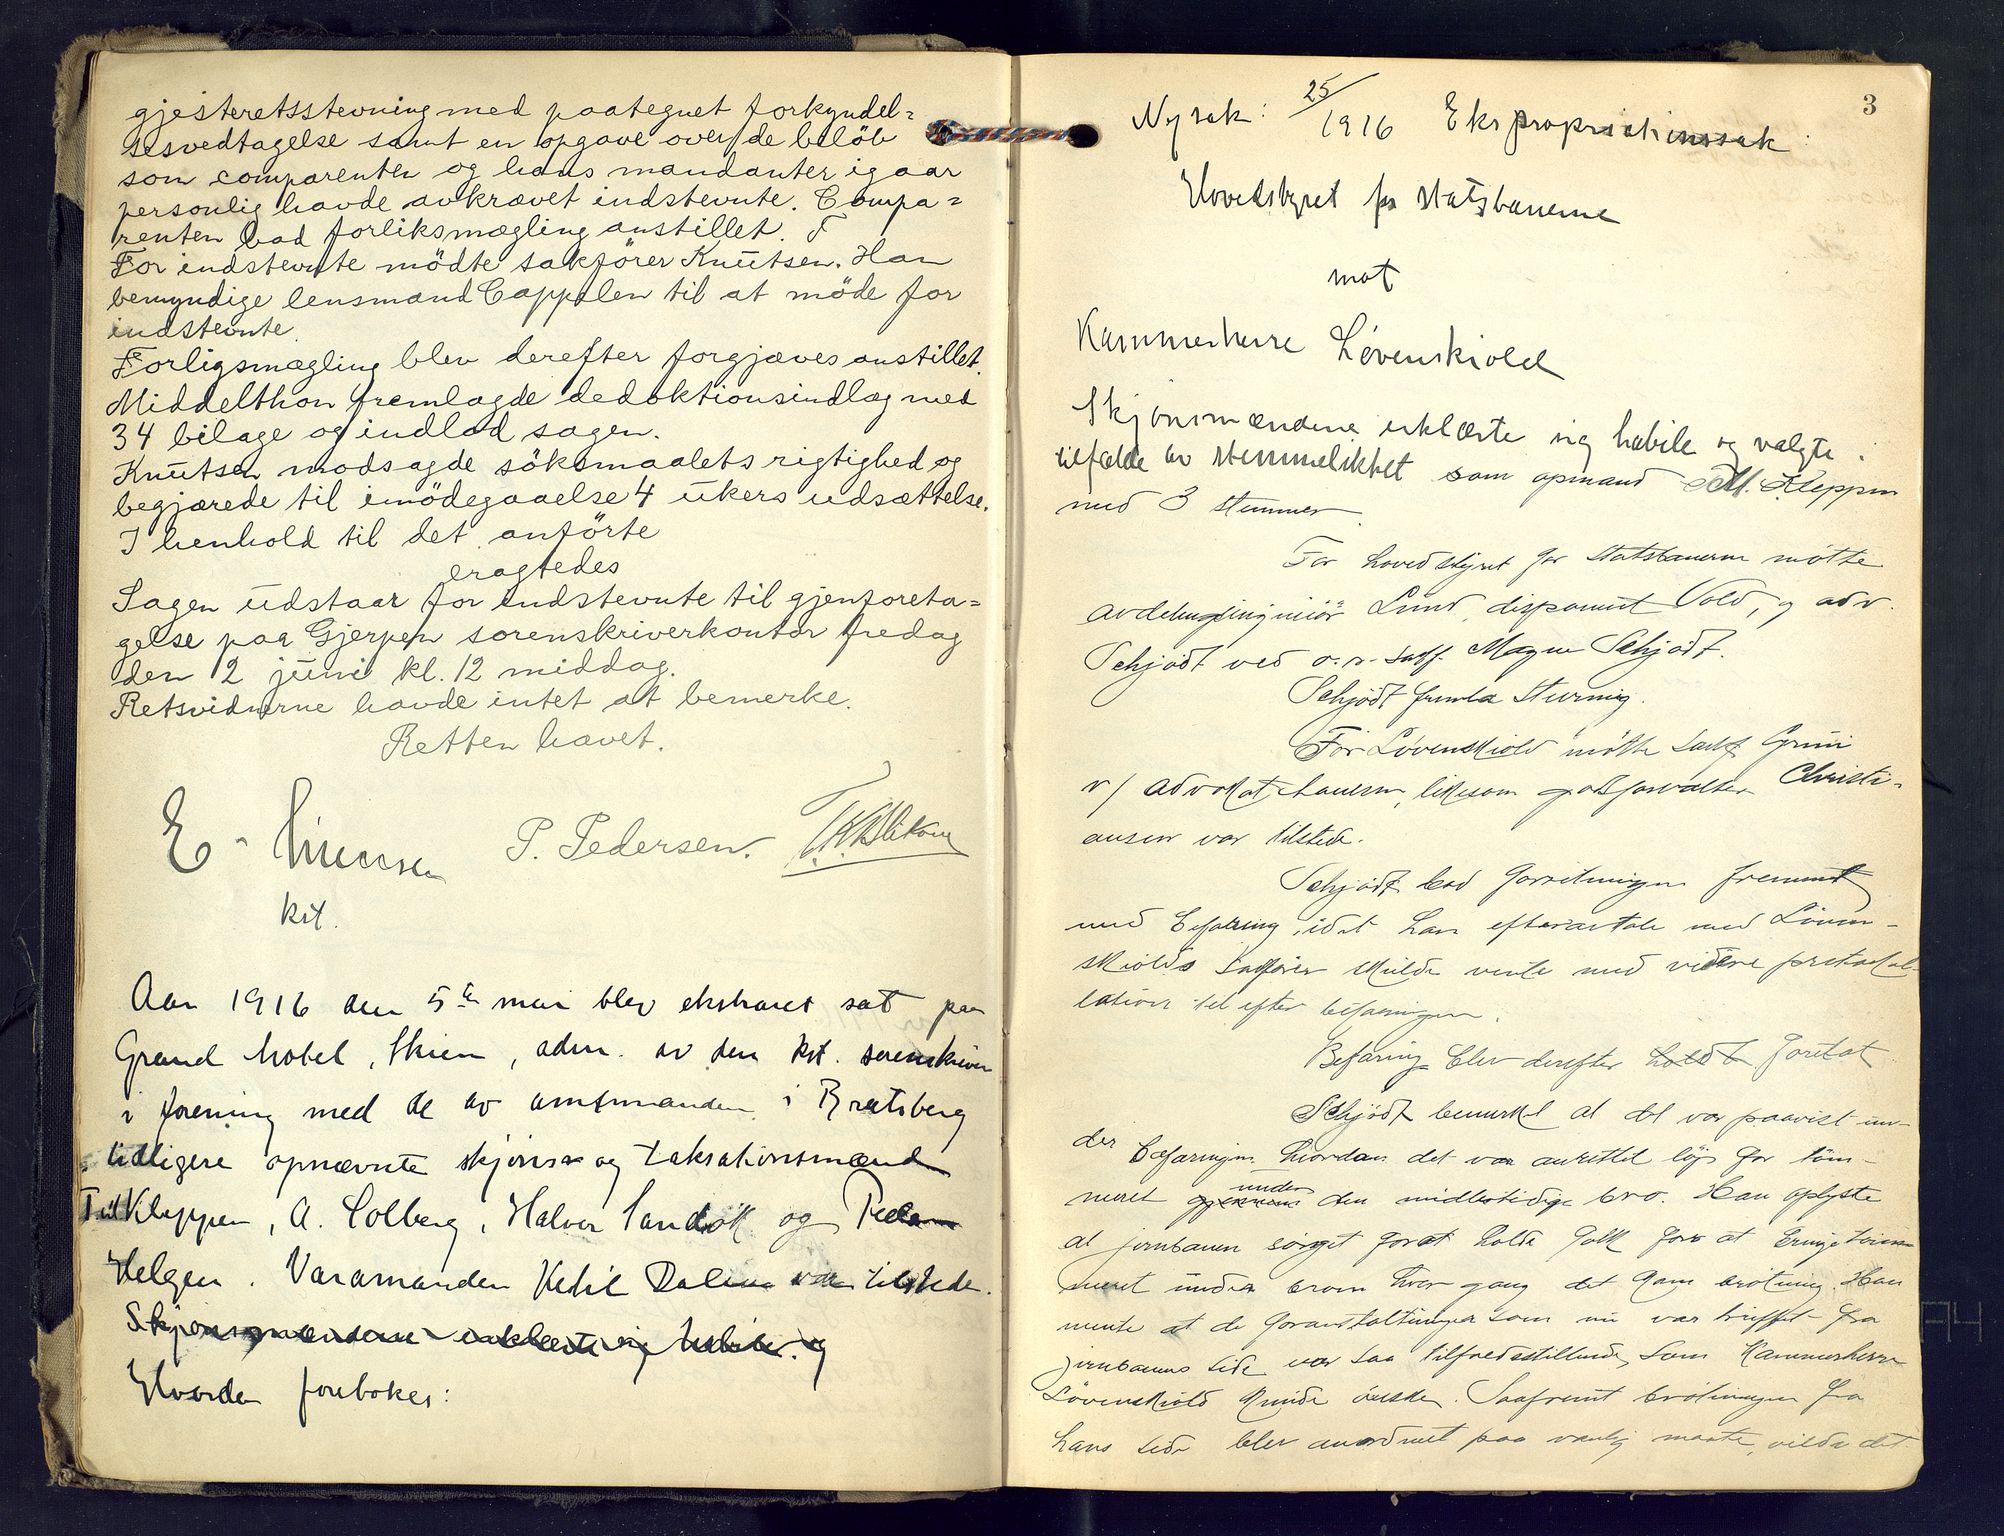 gjesteretsstevning med paategnet forkyndel=
sesvedtagelse samt en opgave over de beløb
som comparenten og hans mandanter igaar
personlig havde avkrævet indstevnte. Compa=
renten bad forliksmægling anstillet.
For indstevnte mödte sakförer Knutsen. Han
bemyndige lensmand Cappelen til at möde for
indstevnte.
Forligsmægling blev derefter forgjæves anstillet.
Middelthon fremlagde dedoktionsindlæg med
34 bilage og indlod sagen.
Knutsen modsagde söksmaalets rigtighed og
begjærede til imödegaaelse 4 ukers udsættelse.
I henhold til det anförte
eragtedes
Sagen udstaar for indstevnte til gjenforeta=
gelse paa Gjerpen sorenskriverkontor fredag
den 2 juni kl. 12 middag.
Retsvidnerne havde intet at bemerke.
Retten hævet.
E.
P. Pedersen.
kst.
Aar 1916 den 5te mai blev ekstraret sat paa
Grand hotel, Skien, adm. av den kst. sorenskriver
i forening med de av amtmanden i Bratsberg
tidligere opnævnte skjøns- og taksationsmænd
Kleppen, A. Solberg, Halvor Sandök og Peder
Helgen. Varamanden Ketil Dalene var tilstede.
Skjønsmændene erklærte sig habile og
Hvorda foreb­okes:
3
Ny sak: 25/1916 Ekspropriationssak:
Hovedstyret for statsbanerne
mot
Kammerherre Løvenskiold
Skjønsmændene erklærte sig habile og valgte i
tilfælde av stemmelikhet som opmand Kleppen
med 3 stemmer.
For hovedstyret for Statsbanerne møtte
avdelingsingeniør Lund, disponent Vold, og adv.
Schjødt ved o.r. sakf. Magne Schjødt.
Schjødt fremla stevning.
For Løvenskiold møtte sakf. Gruni
v/ advokat, likesom godsforvalter Christi-
ansen var tilstede.
Schjødt bad forretningen fremmet
med befaring, idet han efter avtale med Løven-
skiolds sakfører skulde vente med videre protokol-
lation til efter befaringen.
Befaring blev derefter holdt foretat
Schjødt bemerket at det var paavist un-
der befaringen hvordan det var anrettet løp for töm-
meret gjennem under den midlertidige bro. Han oplyste
at jernbanen sørget for at holde folk for at bringe töm-
meret under broen hver gang det kom brötning. Han
mente at de foranstaltninger som nu var truffet fra
jernbanens side var saa tilfredsstillende som Kammerherre
Løvenskiold kunde önske. Saafremt brötningen fra
hans side blev anordnet paa vanlig maate, vilde det